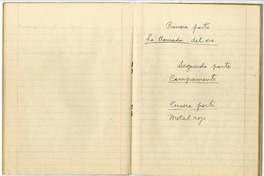 Primera parte
La llamada del oro
Segunda parte
Campamento
Tercera parte
Metal rojo